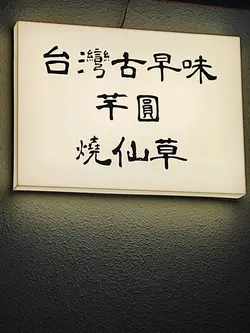 台灣古早味
芋圓
燒仙草